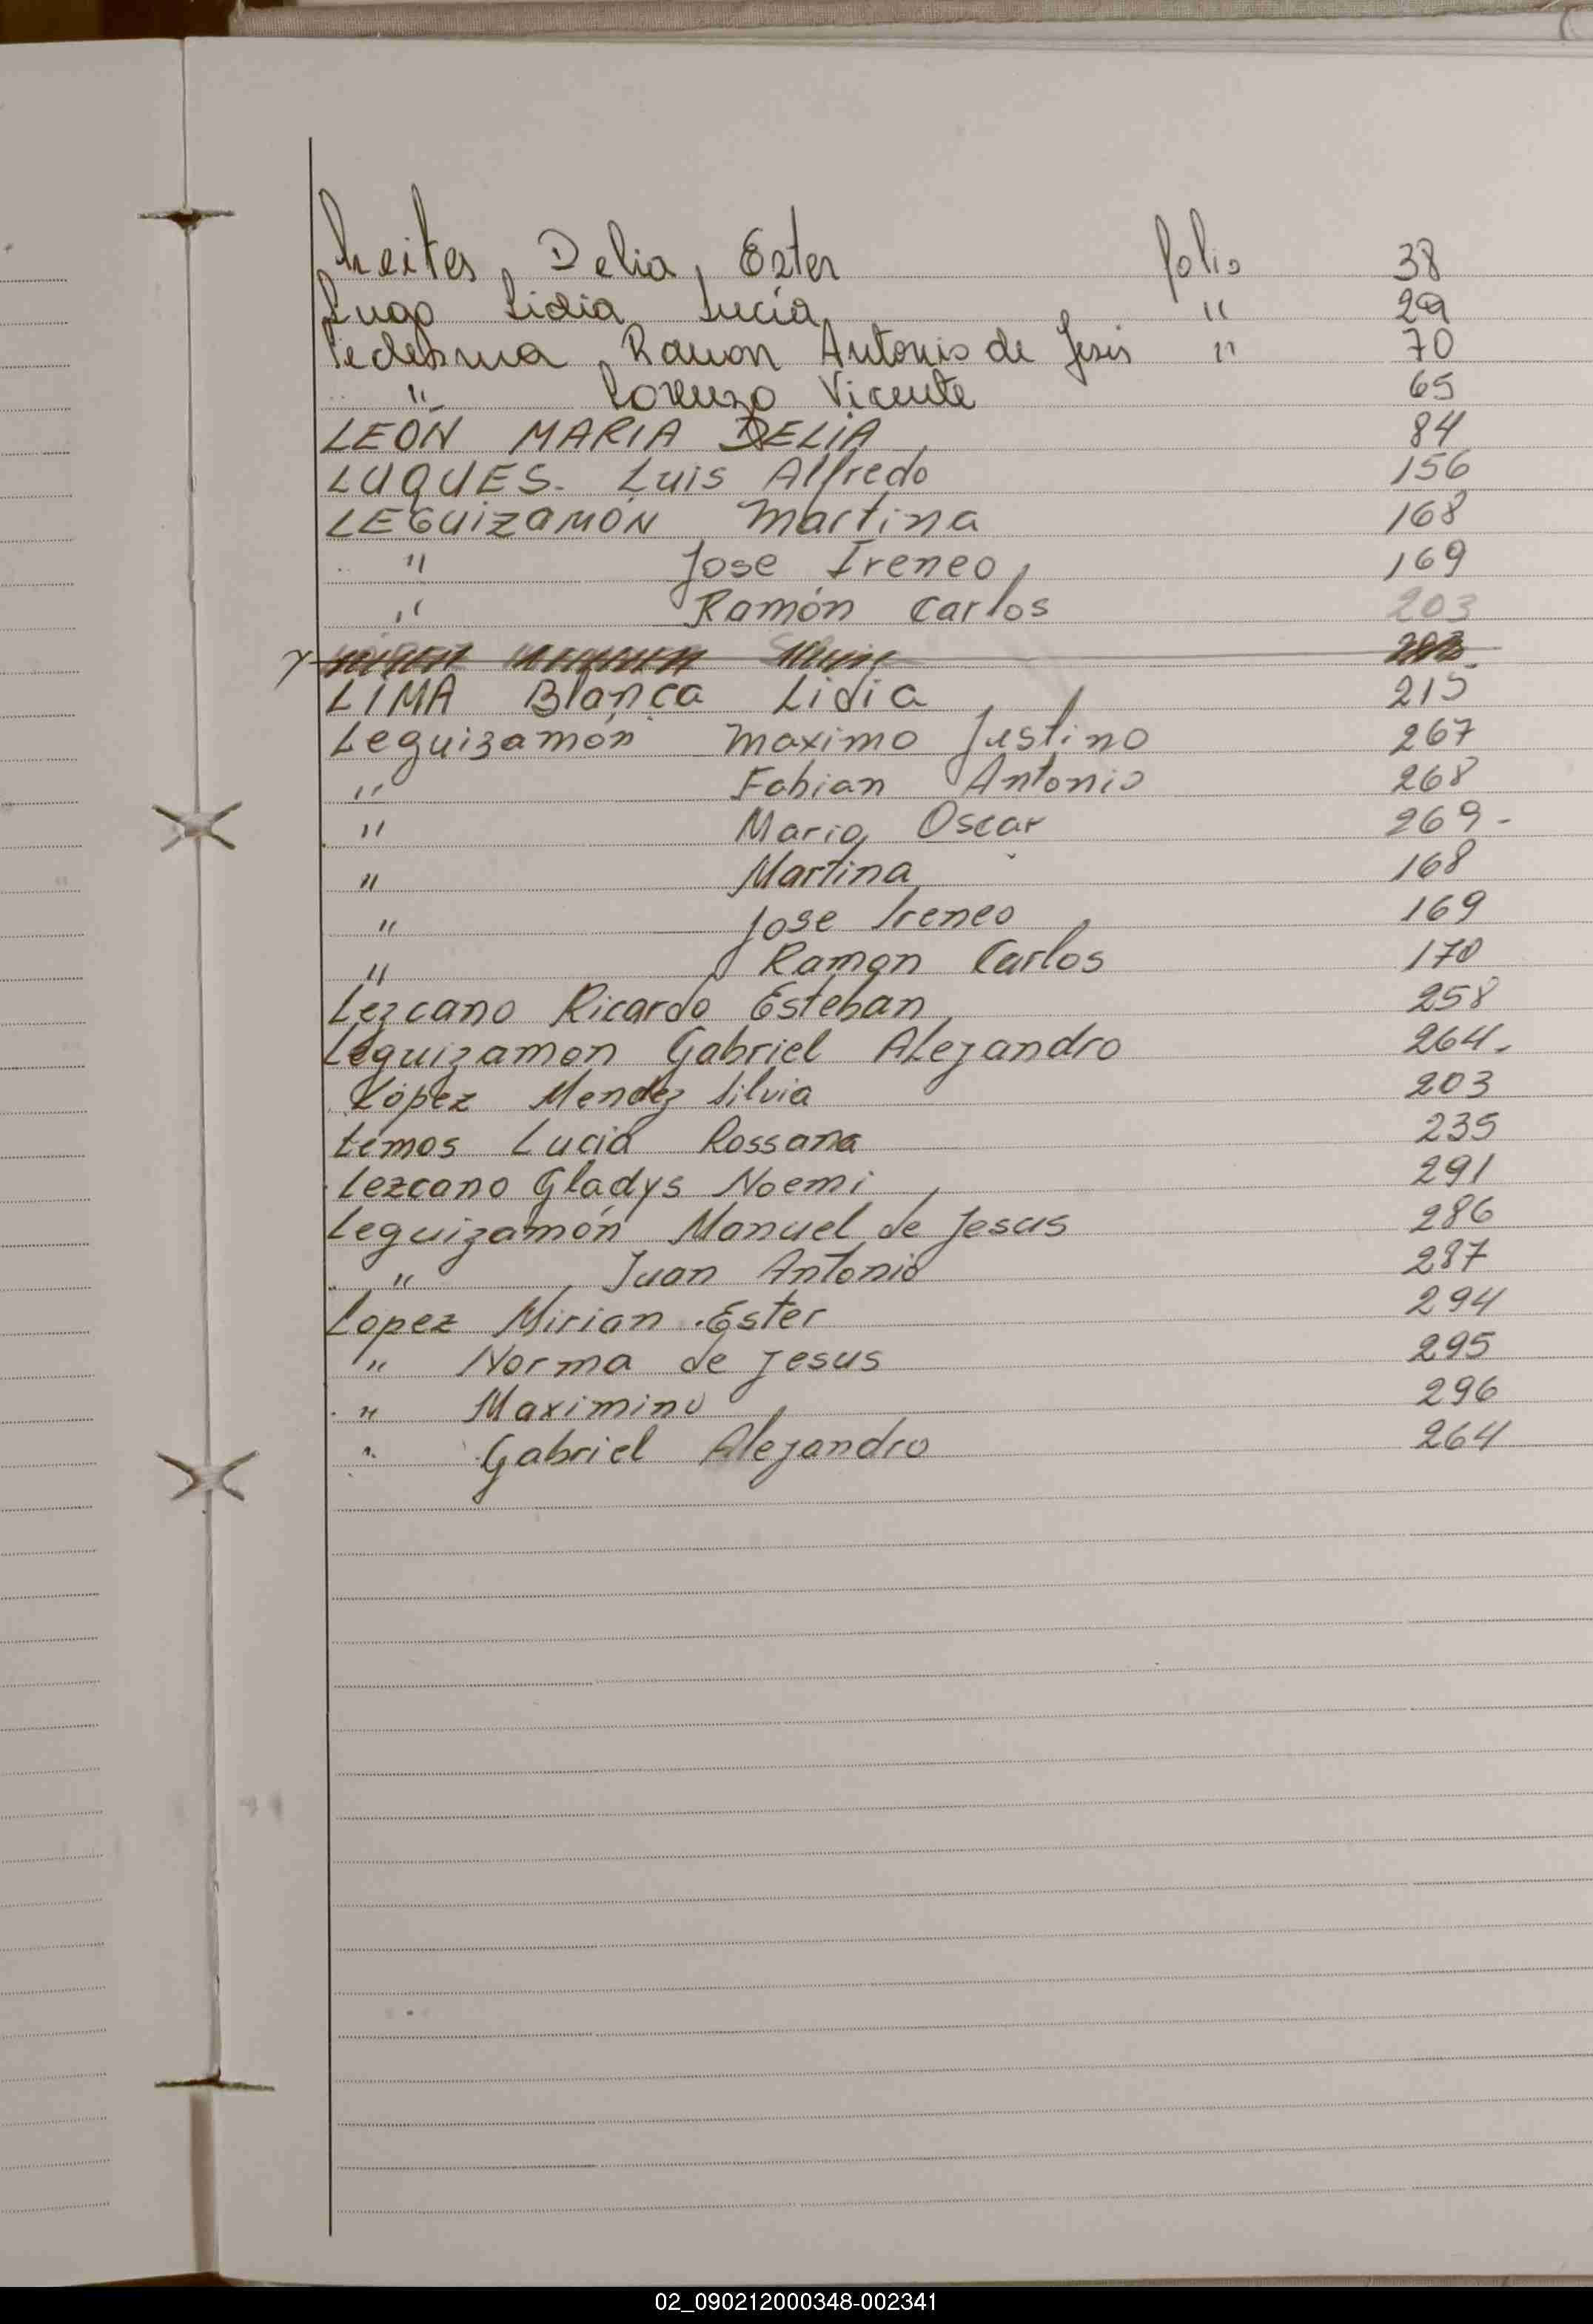 Leites, Delia, Ester folio 38
Lugo Lidia Lucía " 29
Ledesma Ramon Antonio de Jesús " 70
" Lorenzo Vicente 65
LEÓN MARIA DELIA 84
LUQUES. Luis Alfredo 156
LEGUIZAMÓN Martina 168
" Jose Ireneo 169
" Ramón Carlos 203
LIMA Blanca Lidia 215
Leguizamón Maximo Justino 267
" Fabian Antonio 268
" Mario Oscar 269-
" Martina 168
" Jose Ireneo 169
" Ramon Carlos 170
Lezcano Ricardo Esteban 258
Leguizamon Gabriel Alejandro 264.
López Mendez Silvia 203
Lemos Lucia Rossana 235
Lezcano Gladys Noemi 291
Leguizamón Manuel de Jesus 286
" Juan Antonio 287
Lopez Mirian Ester 294
" Norma de Jesus 295
" Maximino 296
" Gabriel Alejandro 264
02_090212000348-002341